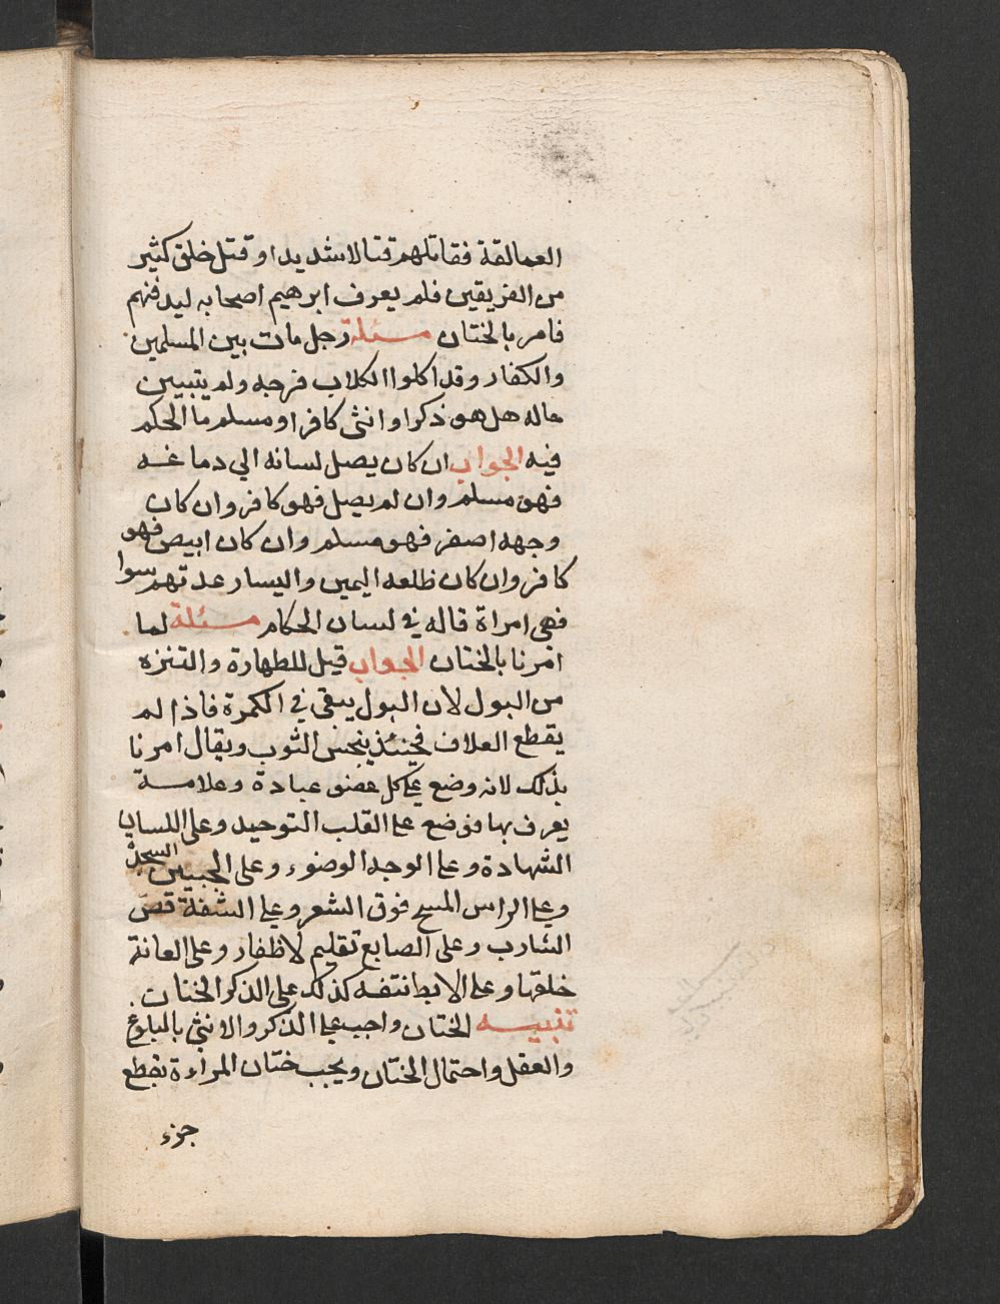 العمالقة فقاتلهم قتالا شديدا وقتل خلق كثير
من الفريقين فلم يعرف ابرهيم اصحابه ليدفنهم
فامر بالختان مسئلة رجل مات بين المسلمين
والكفار وقد اكلوا الكلاب فرجه ولم يتبين
حاله هل هو ذكر او انثى كافر او مسلم ما الحكم
فيه الجواب ان كان يصل لسانه الي دماغه
فهو مسلم وان لم يصل فهو كافر وان كان
وجهه اصفر فهو مسلم وان كان ابيض فهو
كافر وان كان ظلعه اليمين واليسار عدتهم سوا
فهى امراة قاله في لسان الحكام مسئلة لما
امرنا بالختان الجواب قيل للطهارة والتنزه
من البول لان البول يبقى في الكمرة فاذا لم
يقطع الغلاف فحينئذ ينجس الثوب ويقال امرنا
بذلك لانه وضع على كل عضو عبادة وعلامة
يعرف بها فوضع على القلب التوحيد وعلى اللسان
الشهادة وعلى الوجه الوضوء وعلى الجبين السجدة
وعلى الراس المسح فوق الشعر وعلى الشفة قص
الشارب وعلى الصابع تقليم لاظفار وعلى العانة
حلقها وعلى الابط نتفه كذلك على الذكر الختان
تنبيه الختان واجب على الذكر والانثى بالبلوغ
والعقل واحتمال الختان ويجب ختان المراءة بقطع
جزء